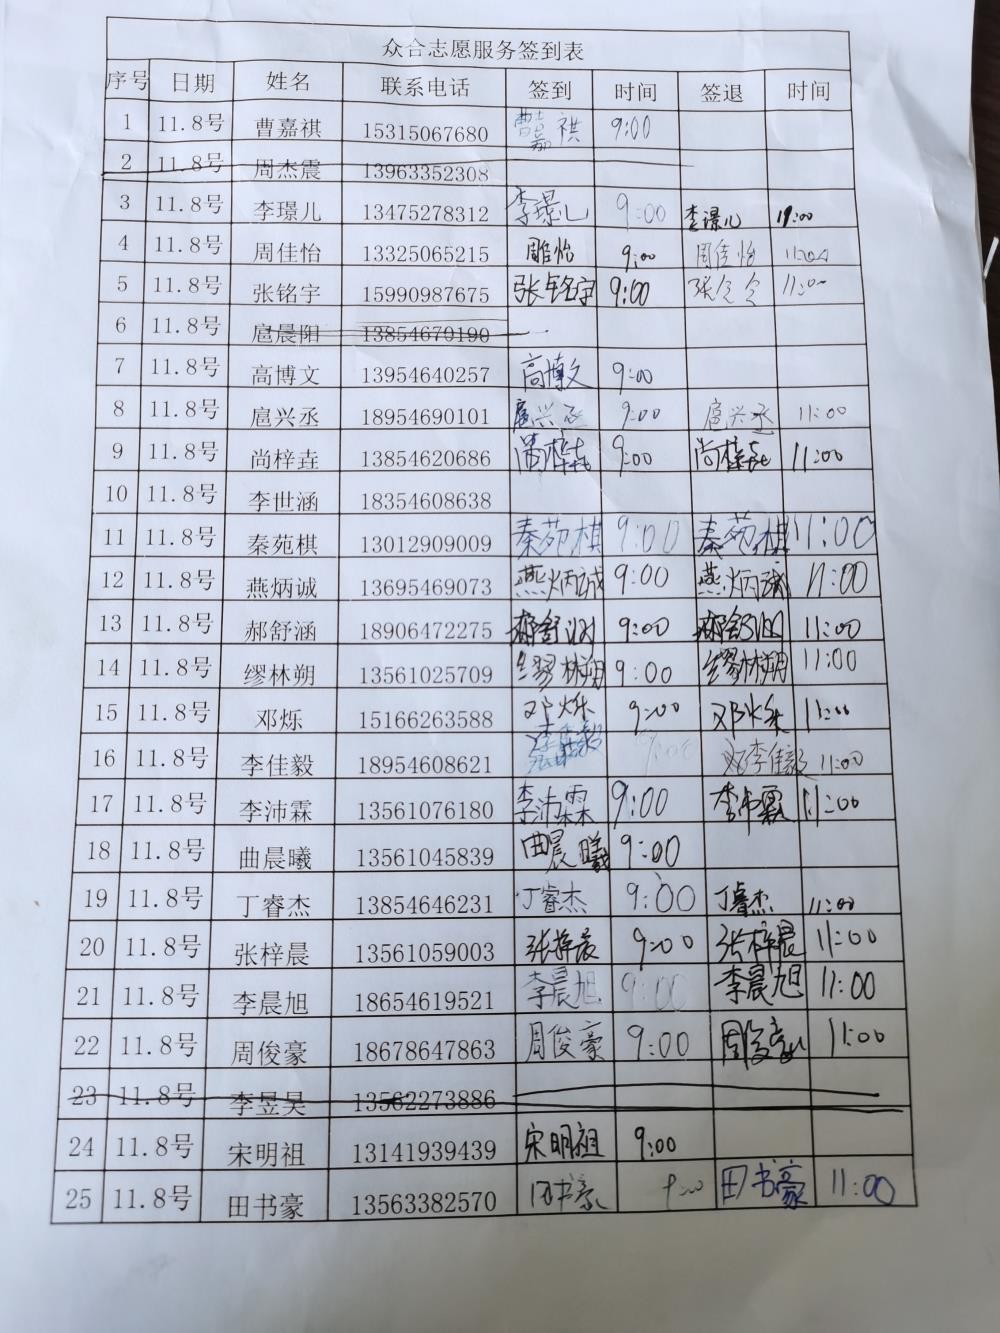 众合志愿服务签到表
序号 日期 姓名 联系电话 签到 时间 签退 时间
1 11.8号 曹嘉祺 15315067680 曹嘉祺 9:00
2 11.8号 周杰震 13963352308
3 11.8号 李璟儿 13475278312 李璟儿 9:00 李璟儿 11:00
4 11.8号 周佳怡 13325065215 周佳怡 9:00 周佳怡 11:00
5 11.8号 张铭宇 15990987675 张铭宇 9:00 11:00
6 11.8号 扈晨阳 13854679190
7 11.8号 高博文 13954640257 高博文 9:00
8 11.8号 扈兴丞 18954690101 扈兴丞 9:00 扈兴丞 11:00
9 11.8号 尚梓垚 13854620686 尚梓垚 9:00 尚梓垚 11:00
10 11.8号 李世涵 18354608638
11 11.8号 秦苑棋 13012909009 秦苑棋 9:00 秦苑棋 11:00
12 11.8号 燕炳诚 13695469073 燕炳诚 9:00 燕炳诚 11:00
13 11.8号 郝舒涵 18906472275 郝舒涵 9:00 郝舒涵 11:00
14 11.8号 缪林朔 13561025709 缪林朔 9:00 缪林朔 11:00
15 11.8号 邓烁 15166263588 邓烁 9:00 邓烁 11:00
16 11.8号 李佳毅 18954608621 李佳毅 李佳毅 11:00
17 11.8号 李沛霖 13561076180 李沛霖 9:00 李沛霖 11:00
18 11.8号 曲晨曦 13561045839 曲晨曦 9:00
19 11.8号 丁睿杰 13854646231 丁睿杰 9:00 丁睿杰 11:00
20 11.8号 张梓晨 13561059003 张梓晨 9:00 张梓晨 11:00
21 11.8号 李晨旭 18654619521 李晨旭 9:00 李晨旭 11:00
22 11.8号 周俊豪 18678647863 周俊豪 9:00 周俊豪 11:00
23 11.8号 李昱昊 13562273886
24 11.8号 宋明祖 13141939439 宋明祖 9:00
25 11.8号 田书豪 13563382570 田书豪 9:00 田书豪 11:00